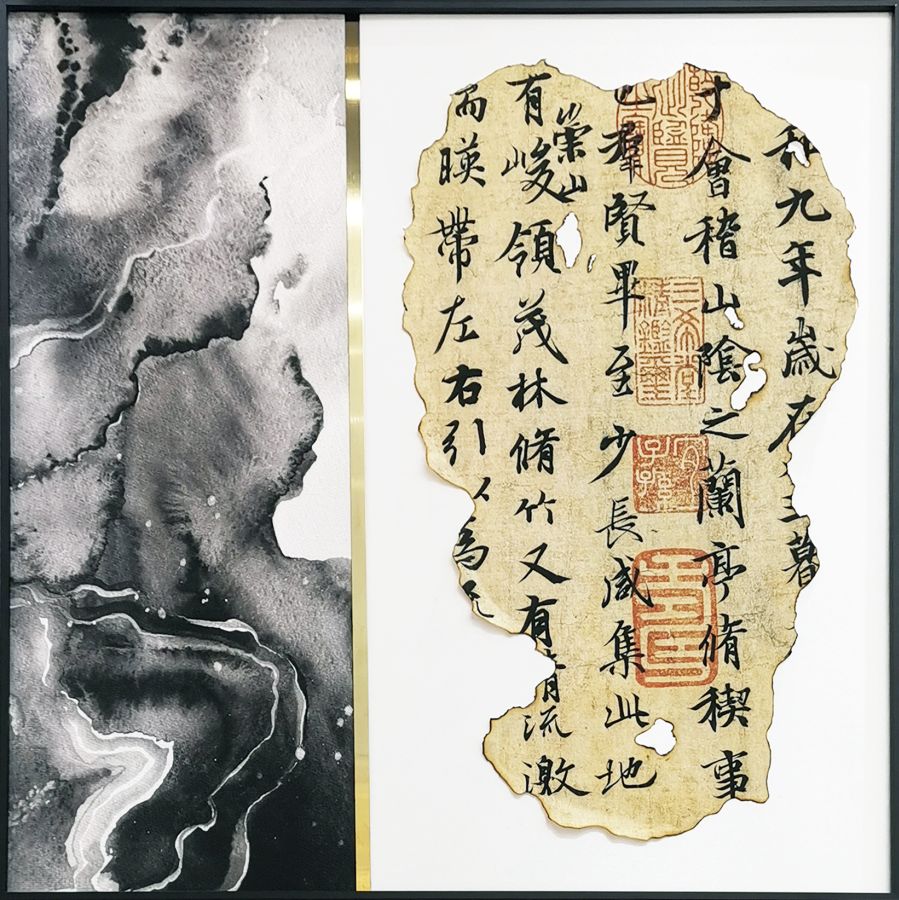 和九年歲在暮
于會稽山陰之蘭亭脩稧事
也羣賢畢至少長咸集此地
有崇山峻領茂林脩竹又有清流激
暎帶左右引以為
三希堂
精鑑璽
宜
子孫